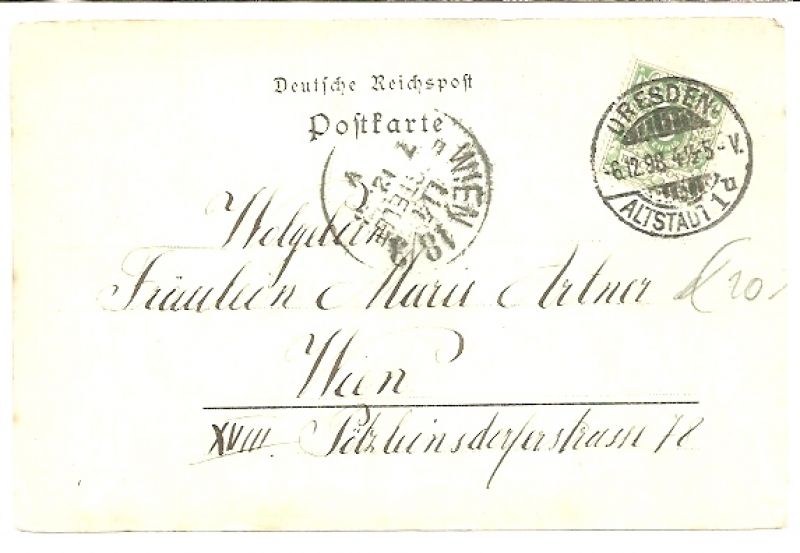 Deutsche Reichspost
Postkarte
DRESDEN
6.12.98. 4½-5-V.
ALTSTADT 1u
WIEN
18/3
Wolgeborn
Fräulein Marie Artner
Wien
XVIII. Pötzleinsdorferstrasse 78